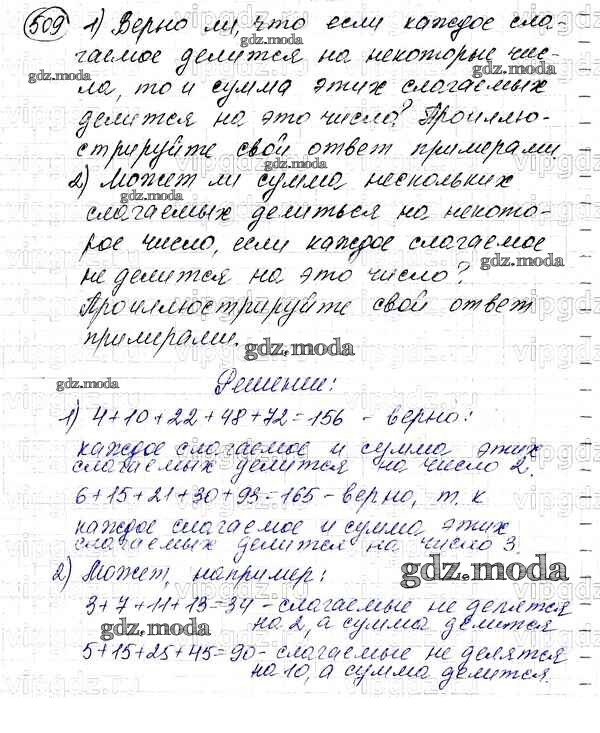 509 1) Верно ли, что если каждое сла-
гаемое делится на некоторые чис-
ла, то и сумма этих слагаемых
делится на это число? Проиллю-
стрируйте свой ответ примерами.
2) Может ли сумма нескольких
слагаемых делиться на некото-
рое число, если каждое слагаемое
не делится на это число?
Проиллюстрируйте свой ответ
примерами.
gdz.moda
Решении:
1) 4+10+22+48+72=156 - верно:
каждое слагаемое и сумма этих
слагаемых делится на число 2.
6+15+21+30+93=165 - верно, т. к
каждое слагаемое и сумма этих
слагаемых делится на число 3.
2) Может, например:
gdz.moda
3+7+11+13=34 - слагаемые не делятся
на 2, а сумма делится
gdz.moda
5+15+25+45=90 - слагаемые не делятся
на 10, а сумма делится.